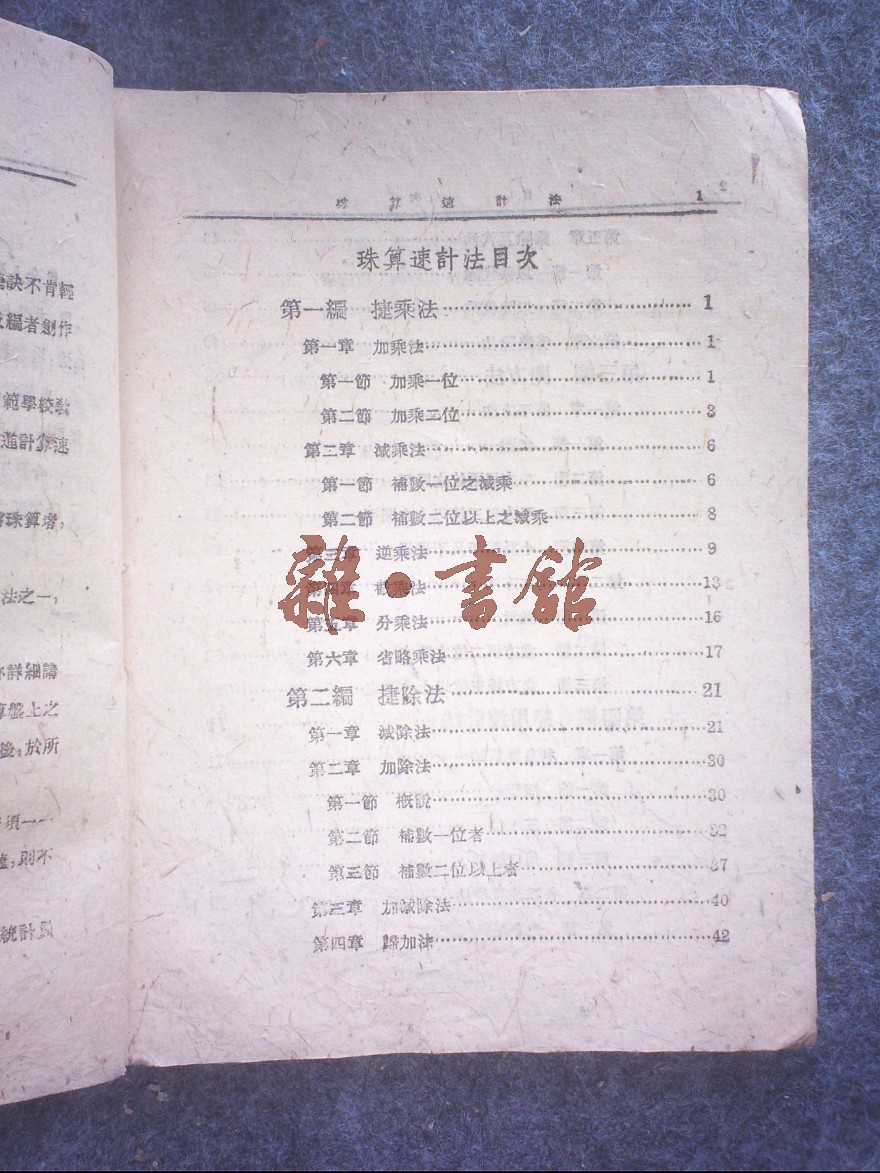 訣不肯輕
編者創作
範學校敎
道計算速
珠算者，
法之一，
詳細講
算盤上之
後，於所
須一一
則不
統計員
珠算速計法 1
珠算速計法目次
第一編 捷乘法 1
第一章 加乘法 1
第一節 加乘一位 1
第二節 加乘二位 3
第二章 減乘法 6
第一節 補數一位之減乘 6
第二節 補數二位以上之減乘 8
第三章 逆乘法 9
第四章 截乘法 13
第五章 分乘法 16
第六章 省略乘法 17
第二編 捷除法 21
第一章 減除法 21
第二章 加除法 30
第一節 概說 30
第二節 補數一位者 32
第三節 補數二位以上者 37
第三章 加減除法 40
第四章 歸加法 42
雜·書館